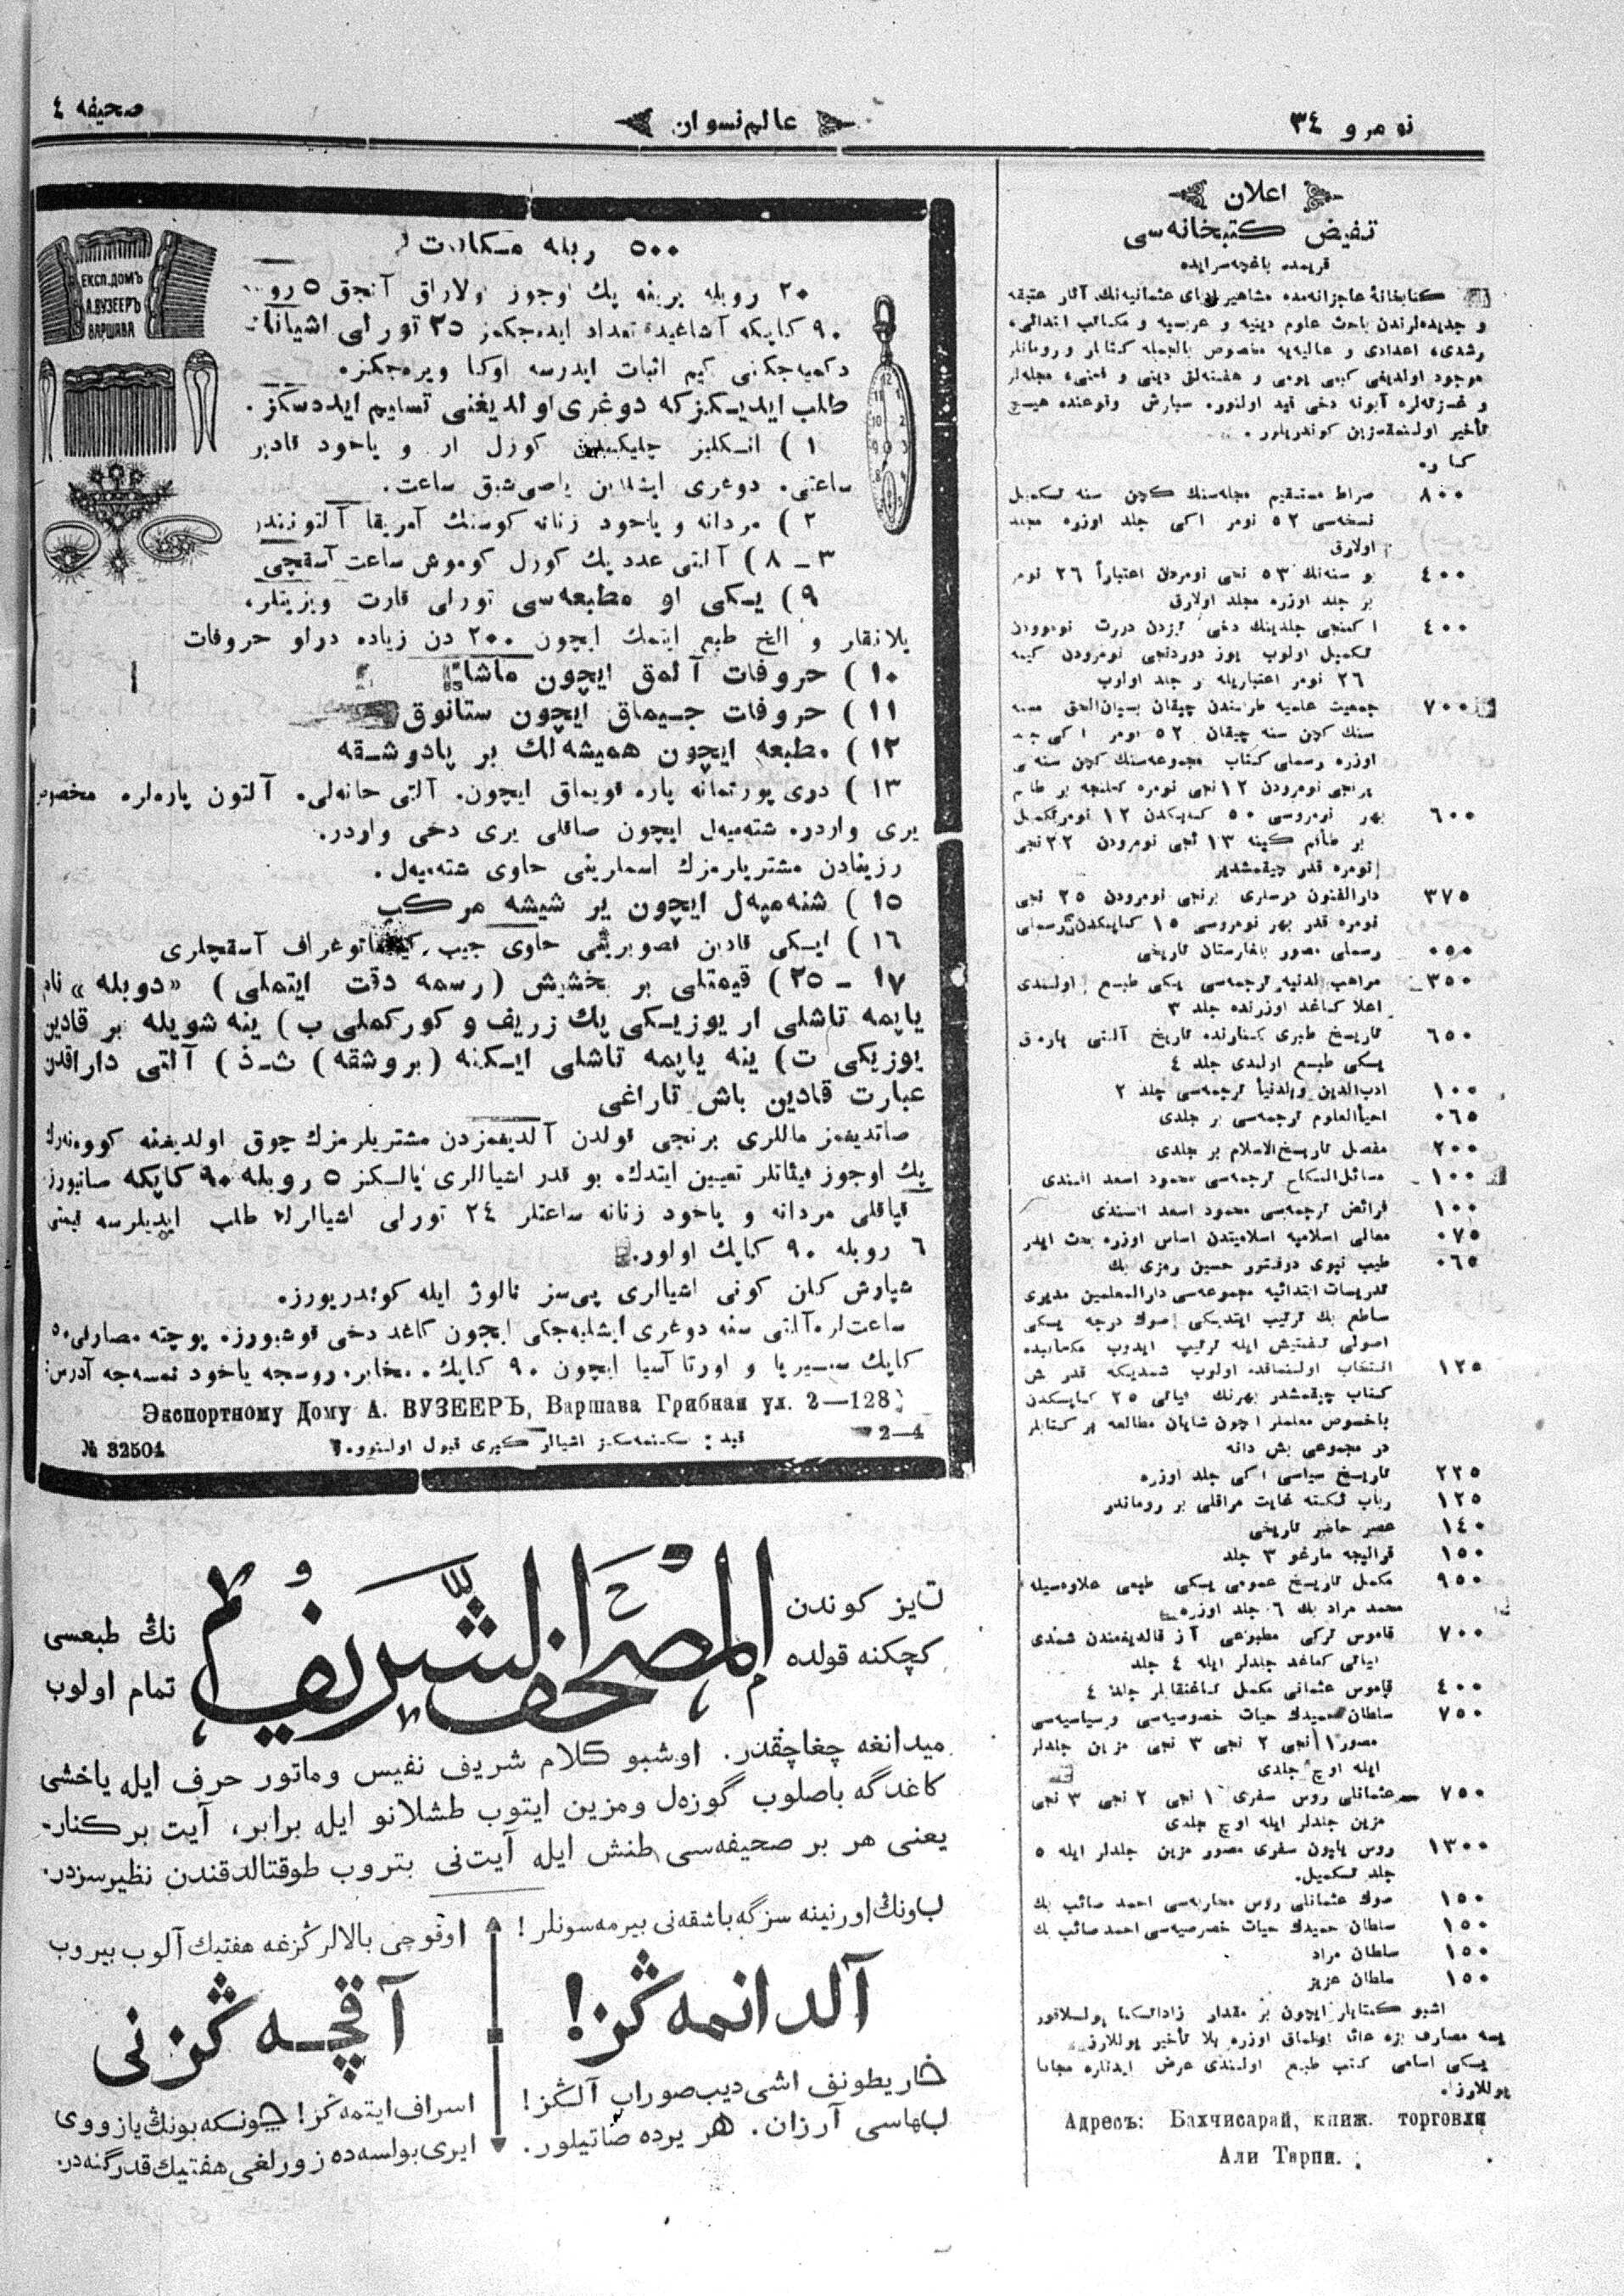 نومرو ٣٤
عالم نسوان
صحیفه ٤
اعلان
تفیض کتبخانه‌سی
قریمده باغچه‌سرایده
کتابخانهٔ عاجزانه‌مده مشاهیر ادبای عثمانیه‌نك آثار عتیقه
و جدیده‌لرندن باحث علوم دینیه و عربیه و مکاتب ابتدائی،
رشدی، اعدادی و عالیه‌یه مخصوص بالجمله کتابلر و رومانلر
موجود اولدیغی کبی یومی و هفته‌لق دینی و فنی، مجله‌لر
و غزته‌لره آبونه دخی قید اولنور. سپارش وقوعنده هیچ
تأخیر اولنمقسزین کوندریلور.
صراط مستقیم مجله‌سنك کچن سنه تکمیل ٨٠٠
نسخه‌سی ٥٢ نومر اکی جلد اوزره مجلد
اولارق
بو سنه‌نك ٥٣ نجی نومردن اعتباراً ٢٦ نومر ٤٠٠
بر جلد اوزره مجلد اولارق
٤٠٠
تکمیل اولوب یوز دوردنجی نومرودن
٢٦ نومر اعتباریله
جمعیت علمیه طرفندن چیقان بیان‌الحق ٧٠٠
سنك کچن سنه چیقان ٥٢ نومر اکی
اوزره رسملی کتاب مجموعه‌سنك کچن سنه
برنجی نومرودن ١٢نجی نومره
بهر نومروسی ٥٠ کاپیکدن ١٢ نومر تکمیل ٦٠٠
بر طاقم ١٣ نجی نومرودن ٢٢ نجی
نومره قدر چیقمشدیر
دارالفنون درسلری برنجی نومرودن ٢٥ نجی ٣٧٥
نومره قدر بهر نومروسی ١٥ کاپیکدن رسملی
رسملی مصور بلغارستان تاریخی ٠٥٠
مواهب لدنیه ترجمه‌سی یکی طبع اولندی ٣٥٠
اعلا کاغد اوزرنده جلد ٣
تاریخ طبری کنارنده تاریخ آلتی پارمق ٦٥٠
یکی طبع اولندی جلد ٤
ادب‌الدین والدنیا ترجمه‌سی جلد ٢ ١٠٠
احیأالعلوم ترجمه‌سی بر جلدی ٠٦٥
مفصل تاریخ‌الاسلام بر جلدی ٢٠٠
مسائل‌النکاح ترجمه‌سی محمود اسعد افندی ١٠٠
فرائض ترجمه‌سی محمود اسعد افندی ١٠٠
معالی اسلامیه اسلامیتدن اساس اوزره بحث ایدر ٠٧٥
طب نبوی دوقتور حسین رمزی بك ٠٦٥
تدریسات ابتدائیه مجموعه‌سی دارالمعلمین مدیری
ساطع بك ترتیب ایتدیکی صوك درجه یکی
اصولی تفتیش ایله ترتیب ایدوب مکاتبده
انتخاب اولنماقده اولوب شمدیکه قدر ش ١٢٥
کتاب چیقمشدر بهرنك فیائی ٢٥ کاپیکدن
باخصوص معلملر اچون شایان مطالعه بر کتابلر
در مجموعی بش دانه
تاریخ سیاسی اکی جلد اوزره ٢٢٥
رباب شکسته غایت مراقلی بر روماندر ١٢٥
عصر حاضر تاریخی ١٤٠
قرالیچه مارغو ٣ جلد ١٥٠
مکمل تاریخ عمومی یکی طبعی علاوه‌سیله ٩٥٠
محمد مراد بك ٦ جلد اوزره
قاموس ترکی مطبوعی آز قالدیغندن شمدی ٧٠٠
فیاتی کاغد جلدلر ایله ٤ جلد
قاموس عثمانی مکمل جلد ٤ ٤٠٠
سلطان حمیدك حیات خصوصیه‌سی و سیاسیه‌سی ٧٥٠
مصور ١ نجی ٢ نجی ٣ نجی مزین جلدلر
ایله اوچ جلدی
عثمانلی روس سفری ١ نجی ٢ نجی ٣ نجی ٧٥٠
مزین جلدلر ایله اوچ جلدی
روس یاپون سفری مصور مزین جلدلر ایله ٥ ١٣٠٠
جلد تکمیل.
صوك عثمانلی روس محاربه‌سی احمد صائب بك ١٥٠
سلطان حمیدك حیات خصوصیه‌سی احمد صائب بك ١٥٠
سلطان مراد ١٥٠
سلطان عزیز ١٥٠
اشبو کتابلر ایچون بر مقدار زادالتکا یوللانور
یسه مصارف بزه عائد اولماق اوزره بلا تأخیر یوللارز
یکی اسامی کتب طبع اولندی عرض ایدنلره مجانا
یوللارز.
Адресъ: Бахчисарай, книж. торговля
Али Тарпи.
٥٠٠ ربله مکافات
٢٠ روبله یرینه پك اوجوز اولاراق آنجق ٥ روبله
٩٠ کاپیکه آشاغیده تعداد ایده‌جکمز ٢٥ تورلی اشیانك
دکمیه‌جکنی کیم اثبات ایدرسه اوکا ویره‌جکز.
طلب ایدیکز که دوغری اولدیغنی تسلیم ایدرسکز.
١) انکلیز چلیکیدن کوزل ار و یاخود قادین
ساعتی. دوغری ایشلاین یاصی شیق ساعت.
٢) مردانه و یاخود زنانه کوستك آمریقا آلتونندن
٣ – ٨) آلتی عدد پك کوزل کوموش ساعت آسقچی
٩) یکی او مطبعه‌سی تورلی قارت ویزیتلر،
بلانقلر و الخ طبع ایتمك ایچون ٢٠٠ دن زیاده درلو حروفات
١٠) حروفات آلمق ایچون ماشا
١١) حروفات جییماق ایچون ستانوق
١٢) مطبعه ایچون همیشه‌لك بر پادوشقه
١٣) دری پورتمانه پاره قویماق ایچون. آلتی خانه‌لی. آلتون پاره‌لره مخصوص
یری واردر. شته‌میه‌ل ایچون صاقلی یری دخی واردر.
رزینادن مشتریلرمزك اسملرینی حاوی شته‌میه‌ل.
١٥) شته‌مپه‌ل ایچون بر شیشه مرکب
١٦) ایکی قادین تصویرینی حاوی جیب کینماتوغراف آسقچلری
١٧ – ٢٥) قیمتلی بر بخشیش (رسمه دقت ایتملی) «دوبله» نام
یاپمه تاشلی ار یوزیکی پك زریف و کورکملی ب) ینه شویله بر قادین
یوزیکی ت) ینه یاپمه تاشلی ایکنه (بروشقه) ث‌ـ‌ذ) آلتی داراقدن
عبارت قادین باش تاراغی
صاتدیغمز ماللری برنجی قولدن آلدیغمزدن مشتریلرمزك چوق اولدیغنه کووه‌نه‌رك
پك اوجوز فیئاتلر تعیین ایتدك. بو قدر اشیالری یالکز ٥ روبله ٩٠ کاپکه صاتیورز
قپاقلی مردانه و یاخود زنانه ساعتلر ٢٤ تورلی اشیالرله طلب ایدیلرسه قیمتی
٦ روبله ٩٠ کاپیك اولور.
شپارش کلن کونی اشیالری پی‌سز نالوژ ایله کوندریورز.
ساعت‌لره آلتی سنه دوغری ایشلیه‌جکی ایچون کاغد دخی قوشیورز. پوچته مصارفی ٥٠
کاپیك سیبیریا و اورتا آسیا ایچون ٩٠ کاپیك. مخابره روسجه یاخود نمسه‌جه آدرس:
Экспортному Дому А. ВУЗЕЕРЪ, Варшава Грибная ул. 2—128
2—4
قید: بکنمه‌یکز اشیالر کیری قبول اولنور.
№ 32504
ЕКСП. ДОМЪ
А. ВУЗЕЕРЪ
ВАРШАВА
تیز کوندن
کچکنه قولده
المصحف الشریف
نڭ طبعسی
تمام اولوب
میدانغه چغاچقدر. اوشبو کلام شریف نفیس وماتور حرف ایله یاخشی
کاغدگه باصلوب گوزه‌ل ومزین ایتوب طشلانو ایله برابر، آیت برکنار.
یعنی هر بر صحیفه‌سی طنش ایله آیت‌نی بتروب طوقتالدقندن نظیرسزدر.
بونڭ اورنینه سزگه باشقه‌نی بیرمه‌سونلر!
آلدانمه‌ڭز!
خاریطونف اشی دیب صوراب آلڭز!
بهاسی آرزان. هر یرده صاتیلور.
اوقوچی بالالرڭزغه هفتیك آلوب بیروب
آقچه‌ڭزنی
اسراف ایتمه‌ڭز! چونکه بونڭ یازووی
ایری بولسه‌ده زورلغی هفتیك قدر گنه‌در.